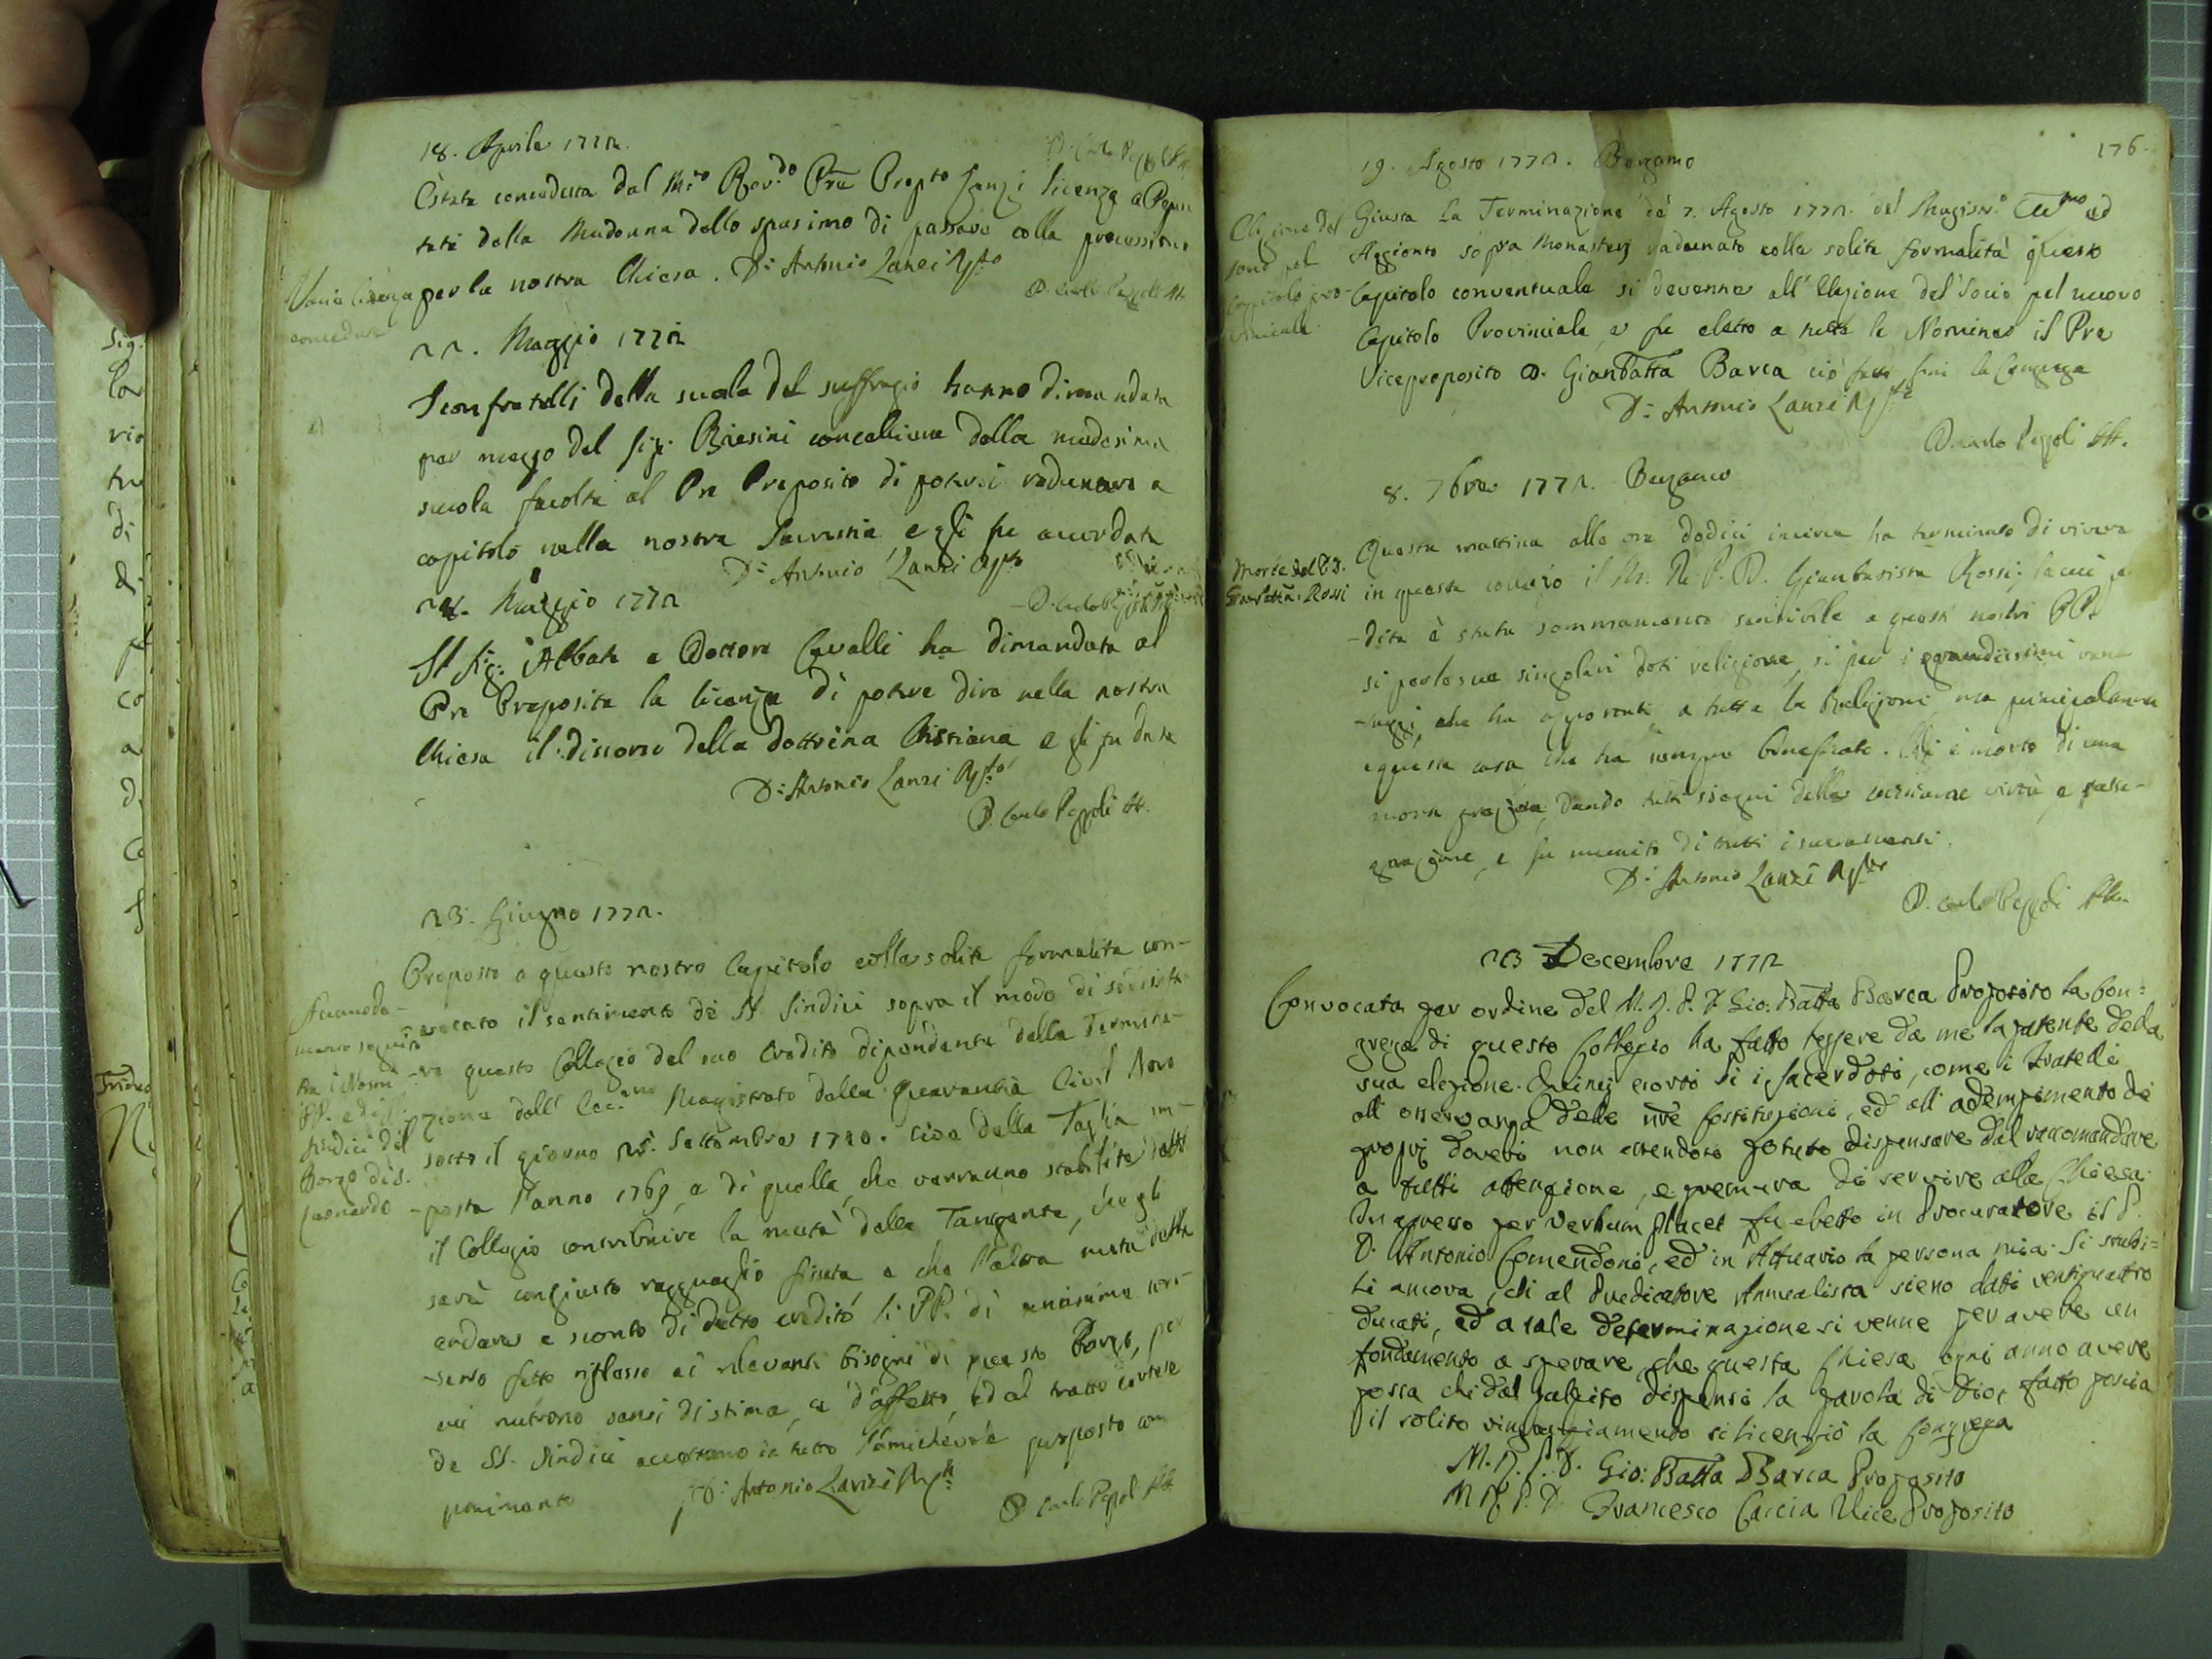 18. Aprile 1772.
È stata conceduta dal M.to Rev.do Pre Prop.to Lanzi licenza a Depu
tati della Madonna dello spasimo di passare colla processione
per la nostra Chiesa. D: Antonio Lanzi Pp.to
D. Carlo Peppoli Att.
Varie licenze
concedute
22. Maggio 1772
I confratelli della scuola del suffragio hanno dimandata
per mezzo del Sig. Bresini cancelliere della medesima
scuola facoltà al Pre Preposito di potersi radunare a
capitolo nella nostra Sacristia e gli fu accordata
D: Antonio Lanzi Pp.to
D. Carlo Peppoli Att.
28. Maggio 1772
Il Sig: Abbate e Dottore Cavalli ha dimandata al
Pre Preposito la licenza di potere dire nella nostra
Chiesa il discorso della Dottrina Cristiana e gli fu data
D: Antonio Lanzi Pp.to
D. Carlo Peppoli Att.
23. Giugno 1772.
Proposto a questo nostro Capitolo colla solita formalità con-
vocato il sentimento de SS. Sindici sopra il modo di
-re questo Collegio del suo Credito dipendente dalla Termina-
zione dell' Ecc.mo Magistrato della Quarantia Civil Novo
sotto il giorno 25. Settembre 1780. cioè della Taglia im-
-posta l'anno 1769, e di quelle, che verranno stabilite
il Collegio contribuire la metà della Tangente, che gli
sarà congiusto ragguaglio fissata, e che l'altra metà
andare a sconto di detto credito li PP. di unanime con-
-senso fatto riflesso ai rilevanti bisogni di questo Borgo, per
cui nutrono sensi di stima, e d'affetto, ed al tratto cortese
de SS. Sindici accettano in tutto l'amichevole proposto com
ponimento
D: Antonio Lanzi Pp.to
D. Carlo Peppoli Att.
tra i Nostri
PP. ed i
Sindici del
Borgo di S.
Leonardo
176.
19. Agosto 1772. Bergamo
Elezione del
socio pel
Capitolo pro-
vinciale.
Giusta la Terminazione de 7. Agosto 1772. del Magistr.o Ecc.mo ed
Aggionto sopra Monasterj radunato colla solita formalità questo
Capitolo conventuale si devenne all' Elezione del Socio pel nuovo
Capitolo Provinciale, e fu eletto a tutte le Nomine il Pre
Vicepreposito D. Gianbatta Barca ciò fatto finì la Congrega
D: Antonio Lanzi Pp.to
D. Carlo Peppoli Att.
8. 7bre 1772. Bergamo
Morte del P. D.
Gianbatta Rossi
Questa mattina alle ore dodici incirca ha terminato di vivere
in questo collegio il M. R. P. D. Gianbatista Rossi; la cui per
-dita è stata sommamente sensibile a questi nostri PP.
si per le sue singolari doti religiose, si per i grandissimi vanta
-ggi, che ha apportati a tutta la Religione, ma principalmen
a questa casa che ha sempre beneficata. Egli è morto di una
morte preziosa, dando tutti segni delle cristiane virtù, e rasse-
gnazione, e fu munito di tutti i sacramenti.
D: Antonio Lanzi Pp.to
D. Carlo Peppoli Att.
23 Decembre 1772
Convocata per ordine del M. R. P. D. Gio: Batta Barca Proposito la Con=
grega di questo Collegio ha fatto leggere da me la patente della
sua elezione. Quindi esortò sì i Sacerdoti, come i Fratelli
all' osservanza delle nre Costituzioni, ed all' adempimento de
proprj doveri non essendosi potuto dispensare dal raccomandare
a tutti attenzione, e premura di servire alla Chiesa.
In appresso per Verbum placet fu eletto in Procuratore il P.
D. Antonio Comendoni, ed in Attuario la persona mia. Si stabi=
lì ancora, che al Predicatore Annualista sieno dati ventiquattro
ducati, ed a tale determinazione si venne per avere un
fondamento a sperare, che questa Chiesa ogni anno avere
possa chi dal Pulpito dispensi la parola di Dio, fatto poscia
il solito ringraziamento si licenziò la Congrega
M. R. P. D. Gio: Batta Barca Proposito
M. R. P. D. Francesco Caccia Vice Proposito